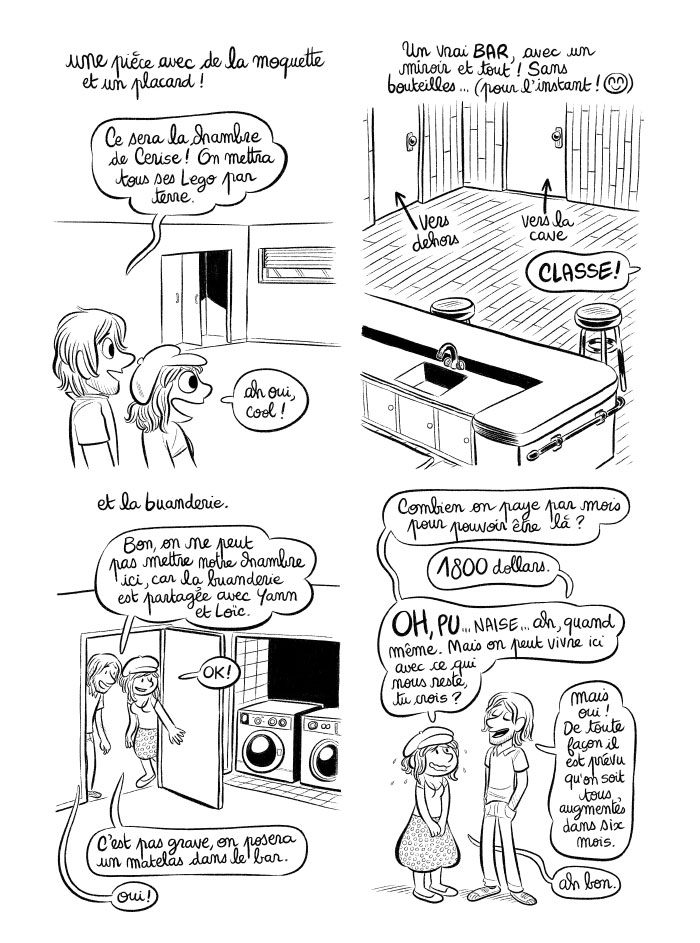 une pièce avec de la moquette
et un placard !
Ce sera la chambre
de Cerise ! On mettra
tous ses Lego par
terre.
ah oui,
cool !
Un vrai BAR, avec un
miroir et tout ! Sans
bouteilles... (pour l'instant !😊)
vers
dehors
vers la
cave
CLASSE !
et la buanderie.
Bon, on ne peut
pas mettre notre chambre
ici, car la buanderie
est partagée avec Yann
et Loïc.
OK !
C'est pas grave, on posera
un matelas dans le bar.
oui !
Combien on paye par mois
pour pouvoir être là ?
1800 dollars.
OH, PU... NAISE... ah, quand
même. Mais on peut vivre ici
avec ce qui
nous reste,
tu crois ?
Mais
oui !
De toute
façon il
est prévu
qu'on soit
tous
augmentés
dans six
mois.
ah bon.